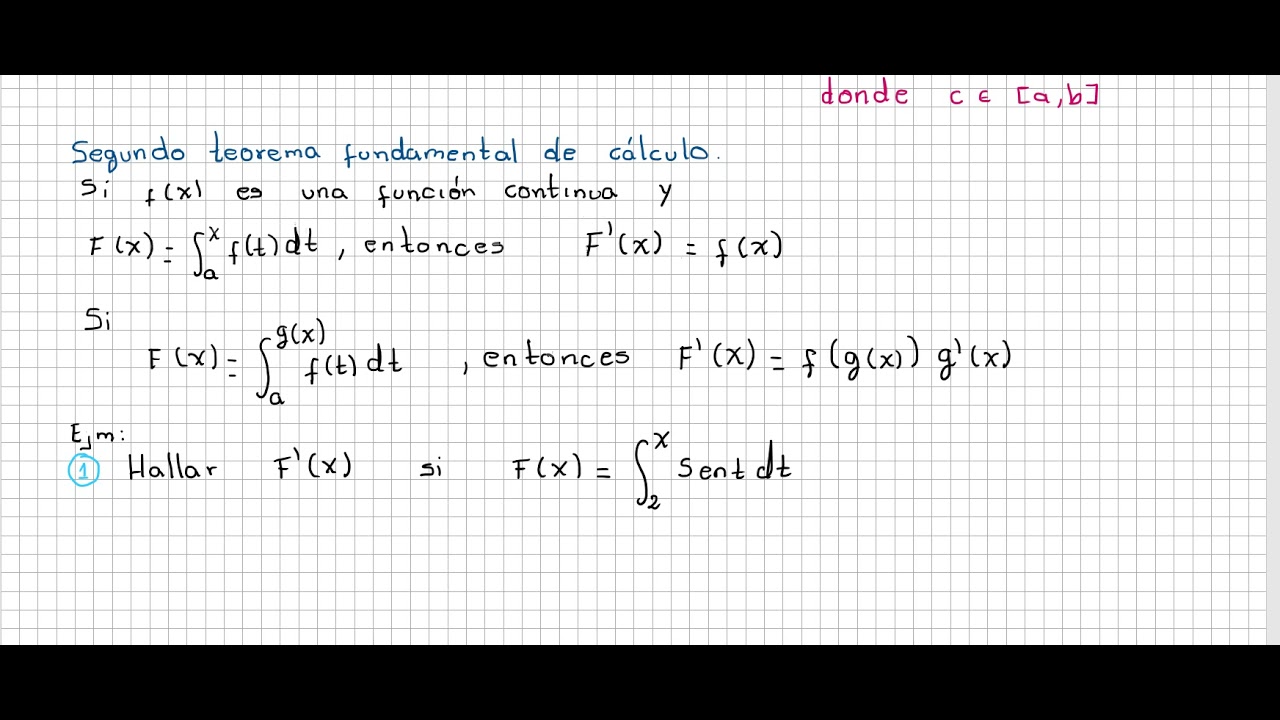 donde c ∈ [a,b]
Segundo teorema fundamental de cálculo.
Si f(x) es una función continua y
F(x) = ∫_a^x f(t) dt, entonces F'(x) = f(x)
Si
F(x) = ∫_a^{g(x)} f(t) dt, entonces F'(x) = f(g(x)) g'(x)
Ejm:
① Hallar F'(x) si F(x) = ∫_2^x Sent dt